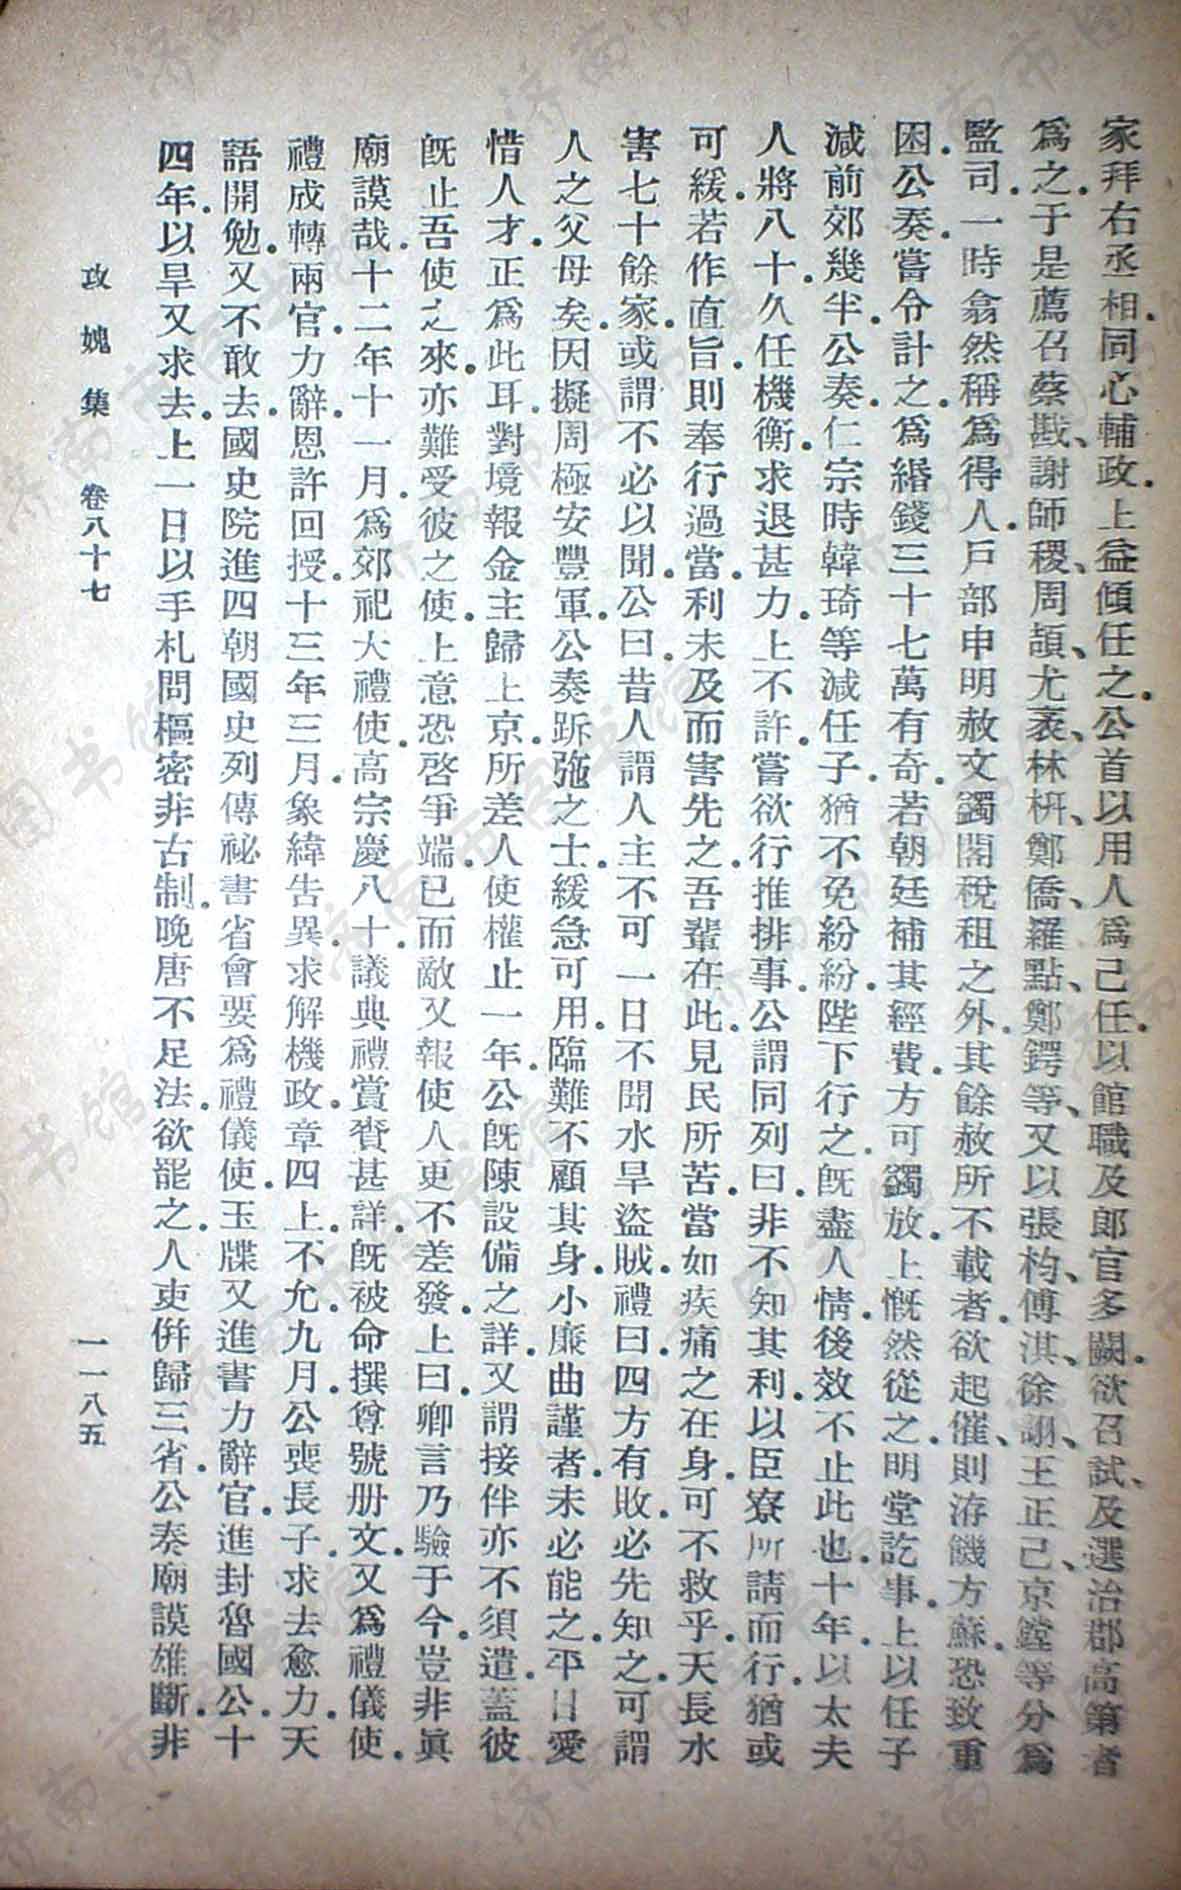 家拜右丞相.同心輔政.上益傾任之.公首以用人爲己任.以館職及郎官多闕.欲召試、及選治郡高第者
爲之.于是薦召蔡戡、謝師稷、周頡、尤袤、林枅、鄭僑、羅點、鄭鍔等、又以張杓、傅淇、徐詡、王正己、京鏜等分爲
監司.一時翕然稱爲得人.戶部申明赦文.蠲閣稅租之外.其餘赦所不載者.欲起催、則洊饑方蘇.恐致重
困.公奏.嘗令計之.爲緡錢三十七萬有奇.若朝廷補其經費.方可蠲放.上慨然從之.明堂訖事.上以任子
減前郊幾半.公奏.仁宗時韓琦等減任子.猶不免紛紛.陛下行之.旣盡人情.後效不止此也.十年.以太夫
人將八十.久任機衡.求退甚力.上不許.嘗欲行推排事.公謂同列曰.非不知其利.以臣寮所請而行.猶或
可緩.若作直旨.則奉行過當.利未及而害先之.吾輩在此.見民所苦.當如疾痛之在身.可不救乎.天長水
害七十餘家.或謂不必以聞.公曰.昔人謂人主不可一日不聞水旱盜賊.禮曰.四方有敗.必先知之.可謂
人之父母矣.因擬周極安豐軍.公奏跅弛之士.緩急可用.臨難不顧其身.小廉曲謹者.未必能之.平日愛
惜人才.正爲此耳.對境報金主歸上京.所差人使權止一年.公旣陳設備之詳.又謂接伴亦不須遣.蓋彼
旣止吾使之來.亦難受彼之使.上意恐啓爭端.已而敵又報使人更不差發.上曰.卿言乃驗于今.豈非眞
廟謨哉.十二年十一月.爲郊祀大禮使.高宗慶八十.議典禮賞賚甚詳.旣被命撰尊號册文.又爲禮儀使.
禮成轉兩官.力辭.恩許回授.十三年三月.象緯告異.求解機政.章四上.不允.九月.公喪長子.求去愈力.天
語開勉.又不敢去.國史院進四朝國史列傳祕書省會要爲禮儀使.玉牒又進書力辭官.進封魯國公.十
四年.以旱又求去.上一日以手札問樞密非古制.晚唐不足法.欲罷之.人吏併歸三省.公奏廟謨雄斷.非
攻媿集 卷八十七 一一八五